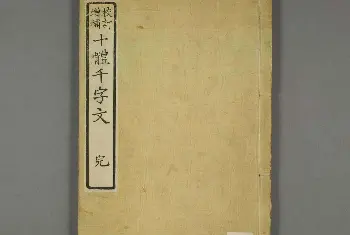 校訂
增補
十體千字文
完